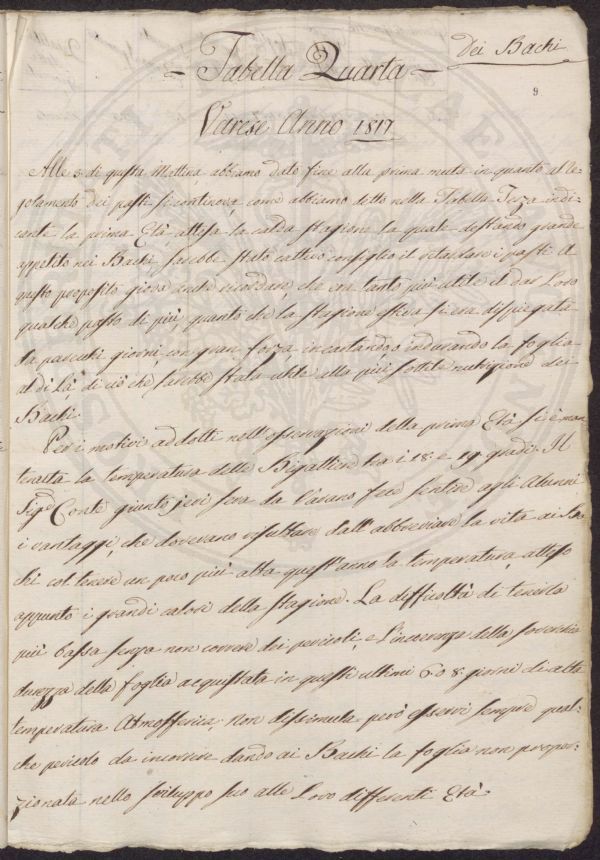 Dei Bachi
9
~ Tabella Quarta ~
Varese Anno 1817
Alle 3 di questa Mattina abbiamo dato fine alla prima muta in quanto al re-
golamento dei pasti si continova, come abbiamo detto nella Tabella Terza indi-
cante la prima Età attesa la calda stagione la quale destando grande
appetito nei Bachi sarebbe stato cattivo consiglio il ritardare i pasti. A
questo proposito giova anche ricordare, che era tanto più utile il dar Loro
qualche pasto di più quanto che la stagione estiva si era dispiegata
da parecchi giorni con gran forza incartando, o indurando la foglia
al di là di ciò che sarebbe stata utile alla più sottile nutrizione dei
Bachi.
Per i motivi addotti nell'osservazioni della prima Età si è man-
tenuta la temperatura delle Bigattiere tra i 18: e 19 gradi. Il
Sigr Conte giunto jeri sera da Varano fece sentire agli Alunni
i vantaggi, che dovevano risultare dall'abbreviare la vita ai Ba-
chi col tenere un poco più alta quest'anno la temperatura, atteso
appunto i grandi calori della stagione. La difficoltà di tenerla
più bassa senza non correre dei pericoli, e l'incarenza della soverchia
durezza della foglia acquistata in questi ultimi 6 o 8 giorni di alta
temperatura Atmosferica; non dissimula però esservi sempre qual-
che pericolo da incorrere dando ai Bachi la foglia non propor-
zionata nello sviluppo suo alle Loro differenti Età.